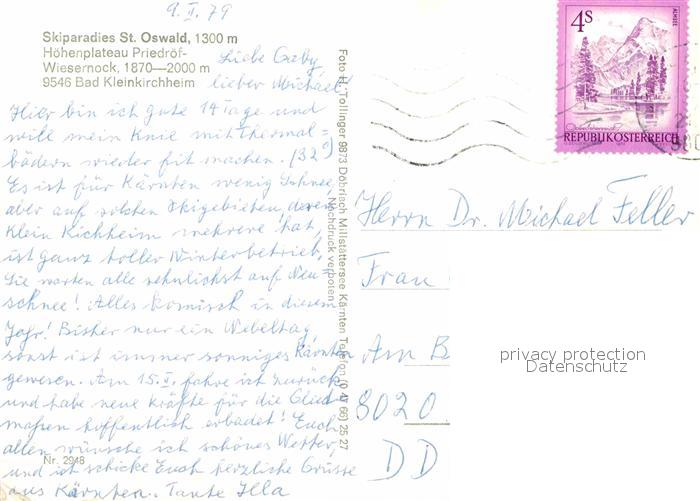 9.II.79
Skiparadies St. Oswald, 1300 m
Höhenplateau Priedröf-
Wiesernock, 1870—2000 m
9546 Bad Kleinkirchheim
Liebe Gaby,
lieber Michael!
Hier bin ich gute 14 Tage und
will mein Knie mit Thermal=
bädern wieder fit machen. (32°)
Es ist für Kärnten wenig Schnee,
aber auf solchen Skigebieten, deren
Klein Kichheim mehrere hat,
ist ganz toller Winterbetrieb.
Sie warten alle sehnlichst auf Neu=
schnee! Alles komisch in diesem
Jahr! Bisher nur ein Nebeltag
sonst ist immer sonniges Kärnten
gewesen. Am 15.II. fahre ich zurück
und habe neue Kräfte für die Glied
maßen hoffentlich erbadet! Euch
allen wünsche ich schönes Wetter,
und ich schicke Euch herzliche Grüsse
aus Kärnten. Tante Illa
Nr. 2948
Foto H. Tollinger 9873 Döbriach Millstättersee Kärnten Telefon (0 47 66) 25 27
Nachdruck verboten
4s
ALMSEE
REPUBLIK ÖSTERREICH
Herrn Dr. Michael Feller
Frau
Am B
8020
DD
privacy protection
Datenschutz